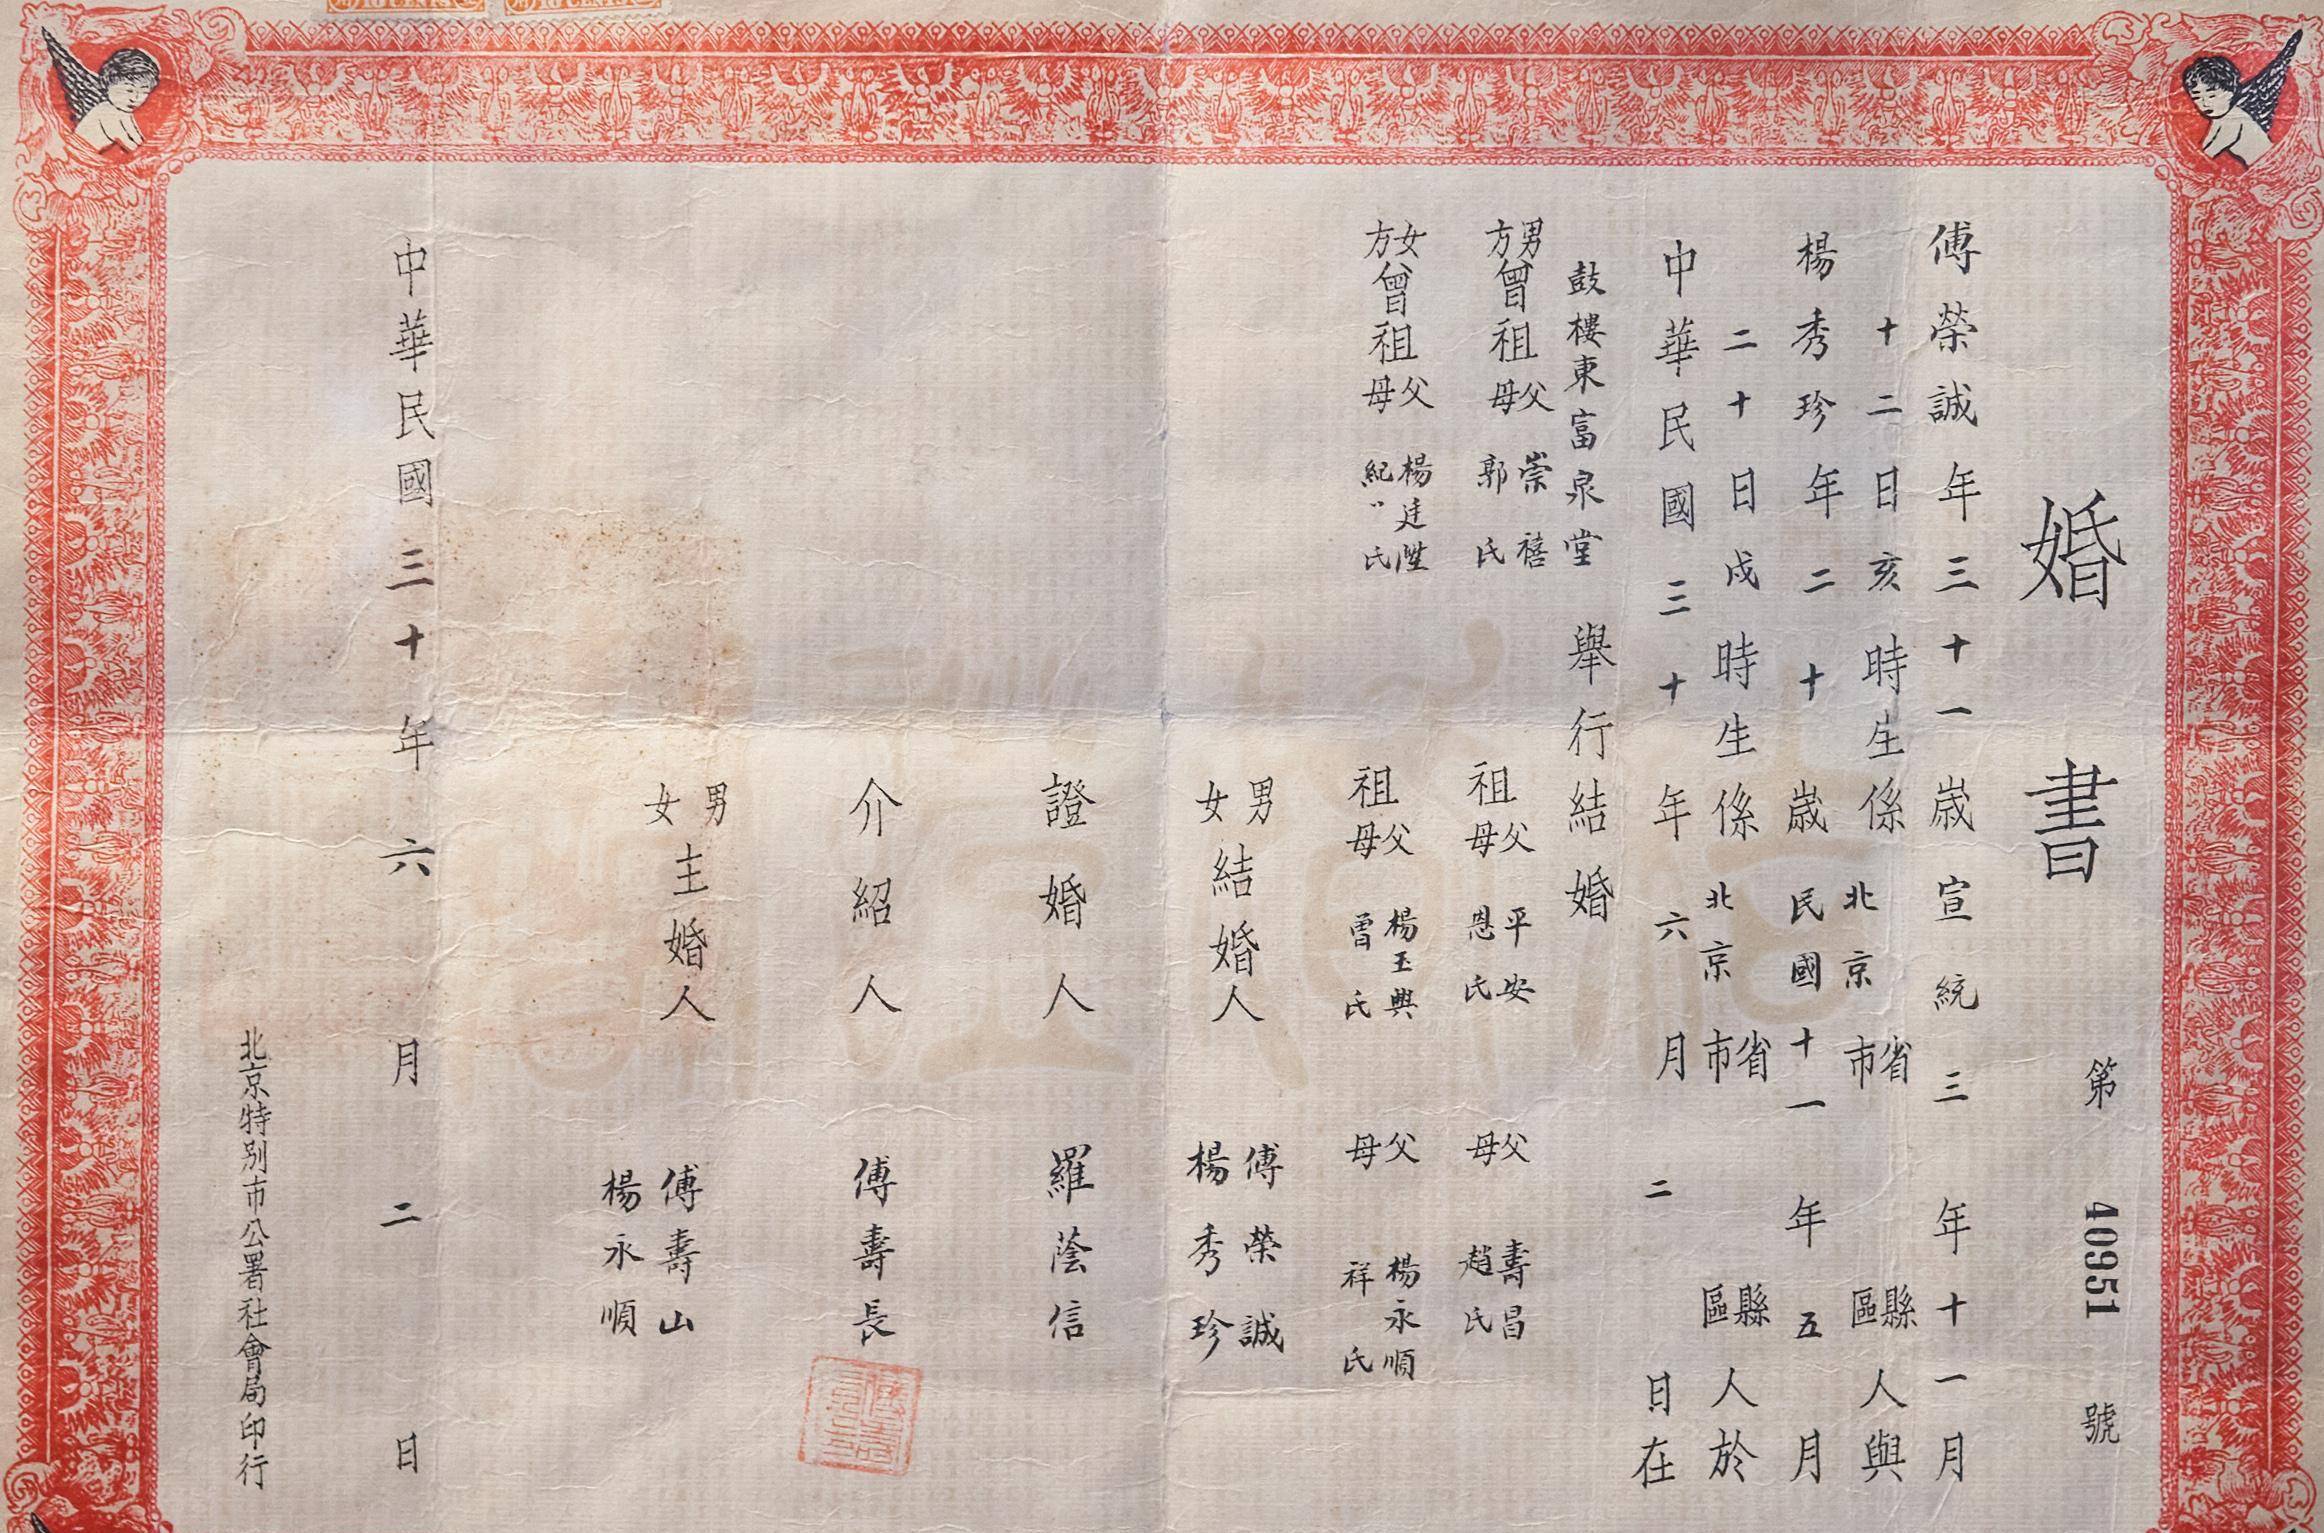 婚書
第 40951 號
傅榮誠年三十一歲宣統三年十一月
十二日亥時生係北京省市縣區人與
楊秀珍年二十歲民國十一年五月
二十日戌時生係北京省市縣區人於
中華民國三十年六月二日在
鼓樓東富泉堂舉行結婚
男方曾祖父母 崇禧 郭氏 祖父母 平安 恩氏 父母 壽昌 趙氏
女方曾祖父母 楊廷陞 紀氏 祖父母 楊玉興 曾氏 父母 楊永順 祥氏
男女結婚人 傅榮誠 楊秀珍
證婚人 羅蔭信
介紹人 傅壽長
男女主婚人 傅壽山 楊永順
中華民國三十年六月二日
北京特別市公署社會局印行